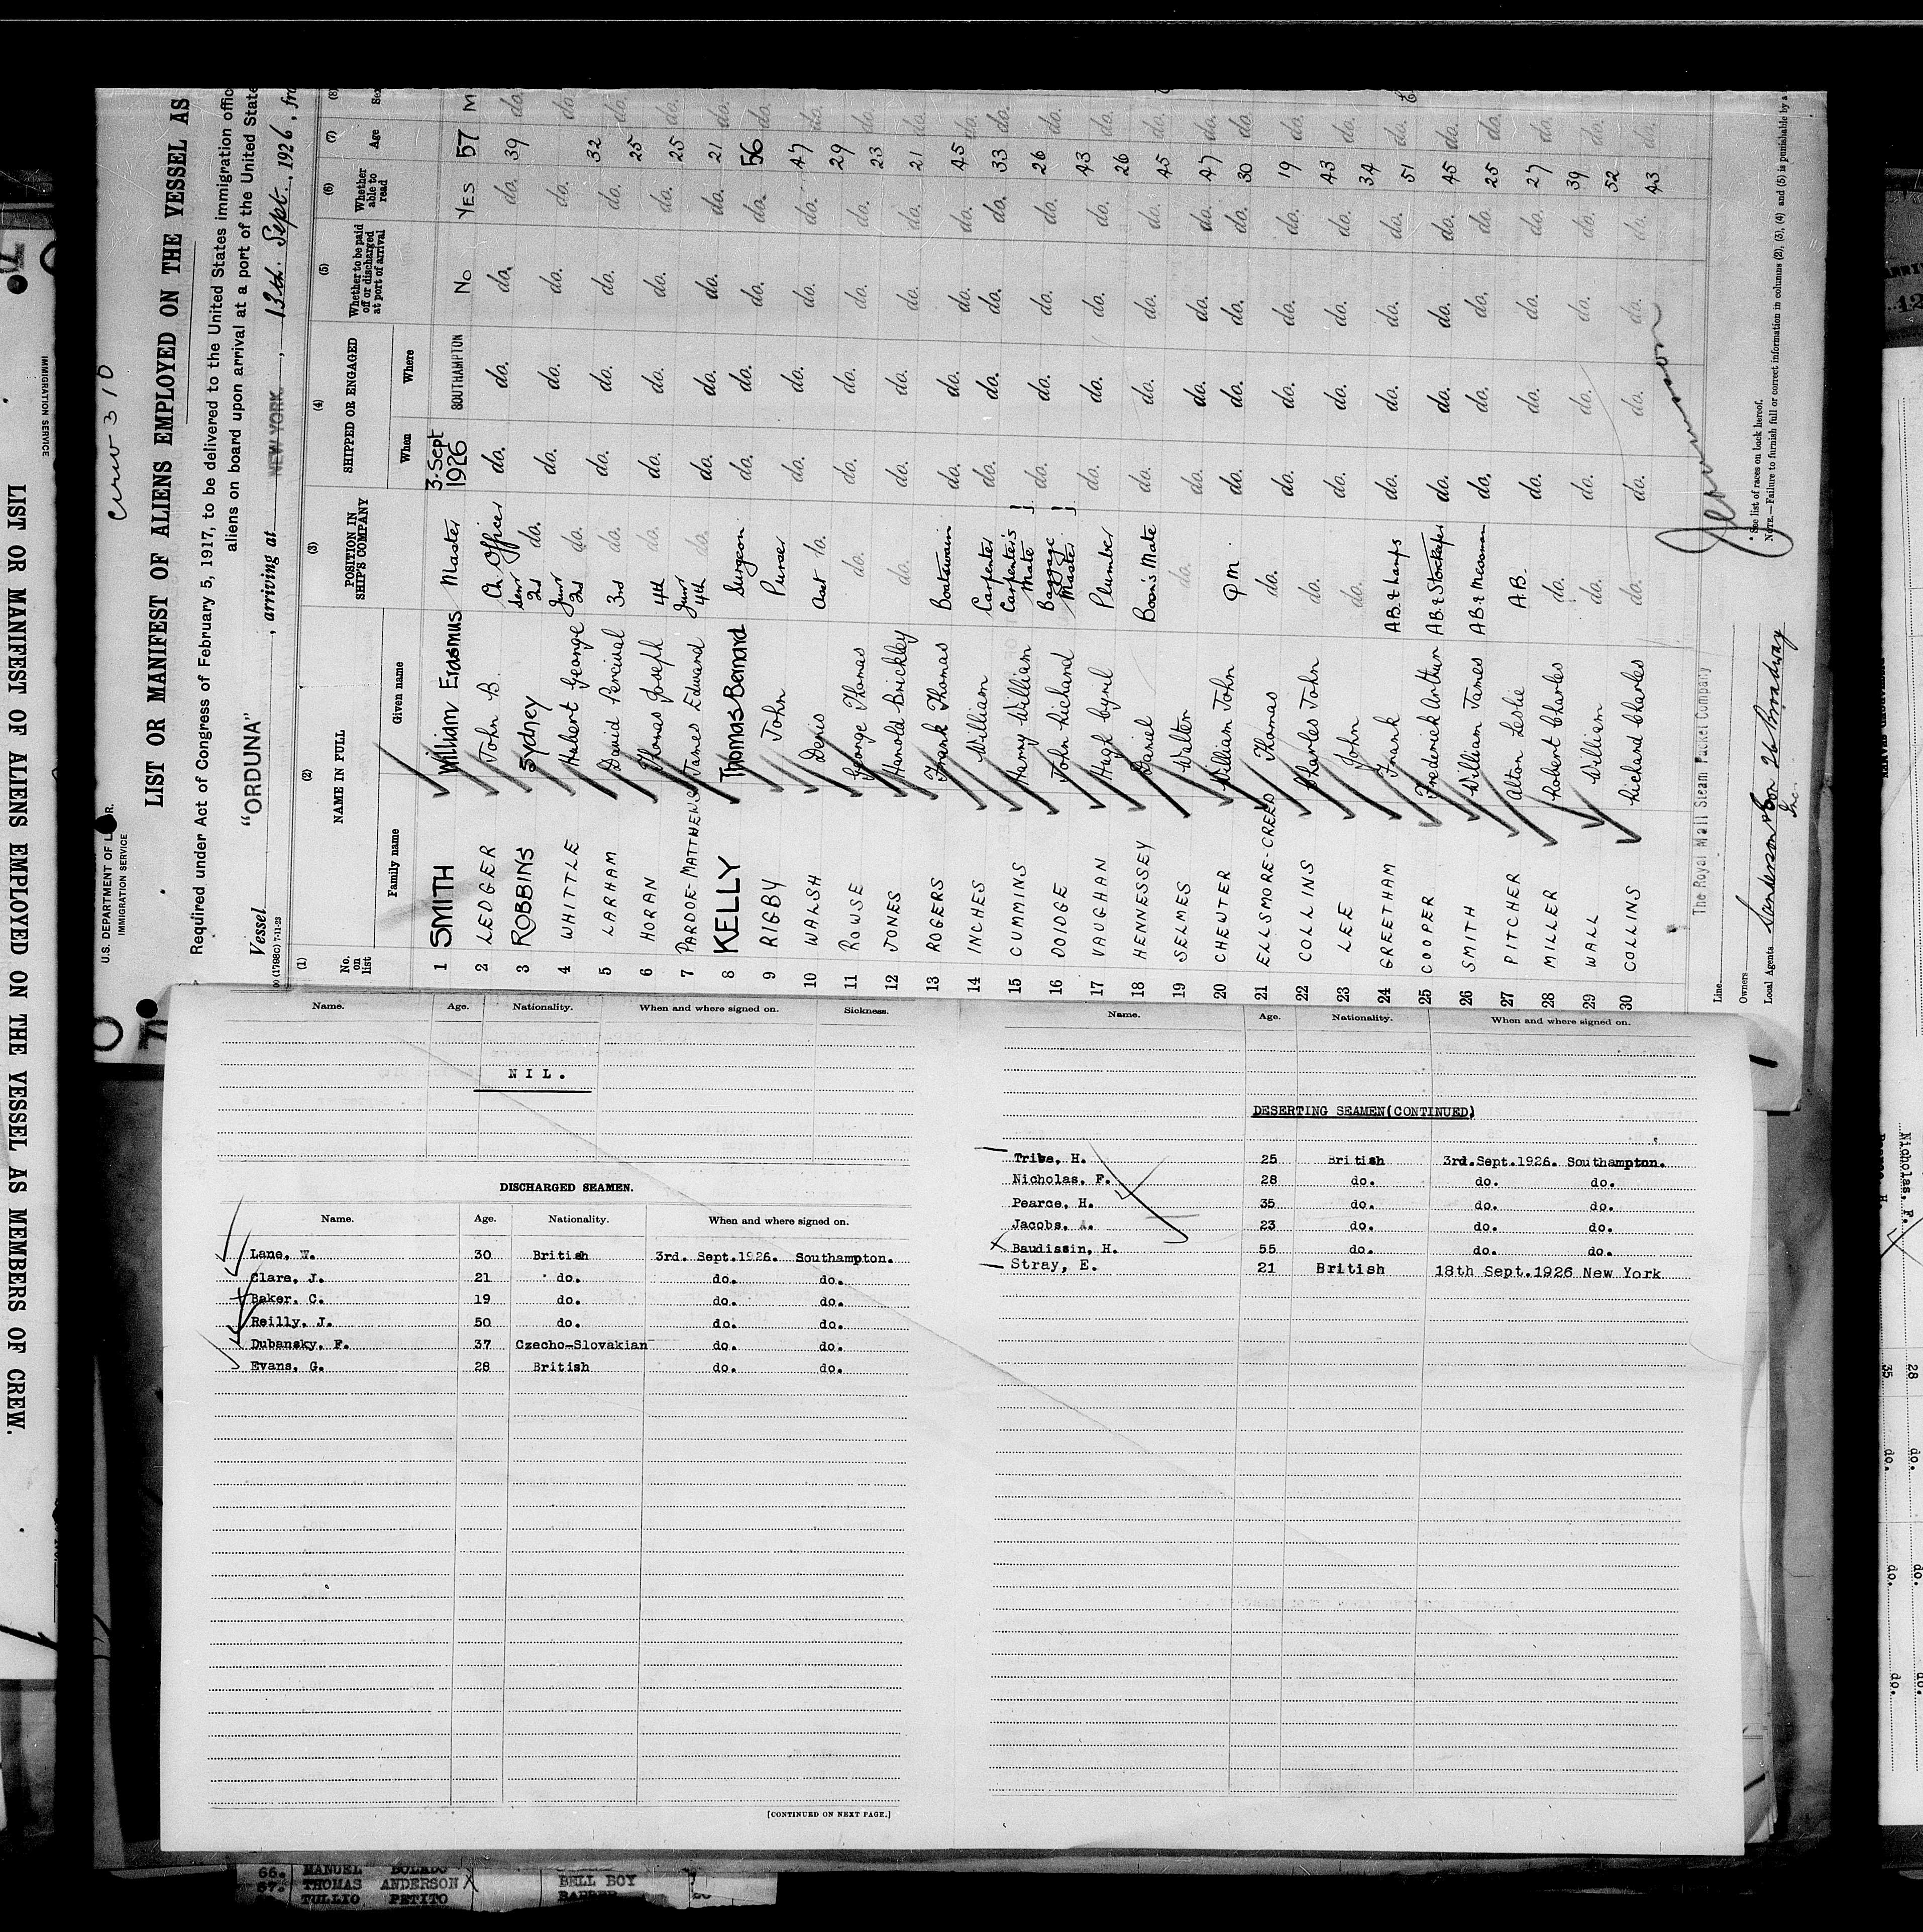 crew 310
U.S. DEPARTMENT OF
IMMIGRATION SERVICE
LIST OR MANIFEST OF ALIENS EMPLOYED ON THE VESSEL AS
Required under Act of Congress of February 5, 1917, to be delivered to the United States immigration offic
aliens on board upon arrival at a port of the United State
Vessel "ORDUNA", arriving at NEW YORK, 13th. Sept. 1926, fro
(1) (2) (3) (4) (5) (6) (7) (8)
No. on list NAME IN FULL POSITION IN SHIP'S COMPANY SHIPPED OR ENGAGED Whether to be paid off or discharged at port of arrival Whether able to read Age Sex
Family name Given name When Where
1 SMITH William Erasmus Master 3. Sept 1926 SOUTHAMPTON No YES 57 M
2 LEDGER John B. Ch. Officer do. do. do. do. 39 do.
3 ROBBINS Sydney Senr 2nd do. do. do. do. do. do.
4 WHITTLE Hubert George Junr 2nd do. do. do. do. do. 32 do.
5 LARHAM David Percival 3rd do. do. do. do. do. 25 do.
6 HORAN Thomas Joseph 4th do. do. do. do. do. 25 do.
7 PARDOE-MATTHEWS James Edward Junr 4th do. do. do. do. do. 21 do.
8 KELLY Thomas Bernard Surgeon do. do. do. do. 56 do.
9 RIGBY John Purser do. do. do. do. 47 do.
10 WALSH Denis Asst to. do. do. do. do. 29 do.
11 ROWSE George Thomas do. do. do. do. do. 23 do.
12 JONES Harold Brickley do. do. do. do. do. 21 do.
13 ROGERS Frank Thomas Boatswain do. do. do. do. 45 do.
14 INCHES William Carpenter do. do. do. do. 33 do.
15 CUMMINS Harry William Carpenter's Mate do. do. do. do. 26 do.
16 DOIDGE John Richard Baggage Master do. do. do. do. 43 do.
17 VAUGHAN Hugh Cyril Plumber do. do. do. do. 26 do.
18 HENNESSEY Daniel Bosn's Mate do. do. do. do. 45 do.
19 SELMES Walter do. do. do. do. do. 47 do.
20 CHEWTER William John Q M. do. do. do. do. 30 do.
21 ELLSMORE-CREED Thomas do. do. do. do. do. 19 do.
22 COLLINS Charles John do. do. do. do. do. 43 do.
23 LEE John do. do. do. do. do. 34 do.
24 GREETHAM Frank AB. & Lamps do. do. do. do. 51 do.
25 COOPER Frederick Arthur AB & Storekeeper do. do. do. do. 45 do.
26 SMITH William James AB & Messman do. do. do. do. 25 do.
27 PITCHER Alton Leslie A.B. do. do. do. do. 27 do.
28 MILLER Robert Charles do. do. do. do. do. 39 do.
29 WALL William do. do. do. do. do. 52 do.
30 COLLINS Richard Charles do. do. do. do. do. 43 do.
Line The Royal Mail Steam Packet Company
Owners
Local Agents Sanderson & Son 26 Broadway
Inc.
* See list of races on back hereof.
NOTE.—Failure to furnish full or correct information in columns (2), (3), (4) and (5) is punishable by a
Name. Age. Nationality. When and where signed on. Sickness.
NIL.
DISCHARGED SEAMEN.
Name. Age. Nationality. When and where signed on.
Lane, W. 30 British 3rd. Sept.1926. Southampton.
Clare, J. 21 do. do. do.
Baker, C. 19 do. do. do.
Reilly, J. 50 do. do. do.
Dubansky, F. 37 Czecho-Slovakian do. do.
Evans, G. 28 British do. do.
[CONTINUED ON NEXT PAGE.]
Name. Age. Nationality. When and where signed on.
DESERTING SEAMEN(CONTINUED)
Tribe, H. 25 British 3rd.Sept.1926. Southampton.
Nicholas, F. 28 do. do. do.
Pearce, H. 35 do. do. do.
Jacobs, A. 23 do. do. do.
Baudissin, H. 55 do. do. do.
Stray, E. 21 British 18th Sept.1926 New York
LIST OR MANIFEST OF ALIENS EMPLOYED ON THE VESSEL AS MEMBERS OF CREW.
IMMIGRATION SERVICE
66. MANUEL BOLADO
67. THOMAS ANDERSON BELL BOY
TULLIO PETITO BARBER
Nicholas, F. 28 do. do.
35 do. do. do.